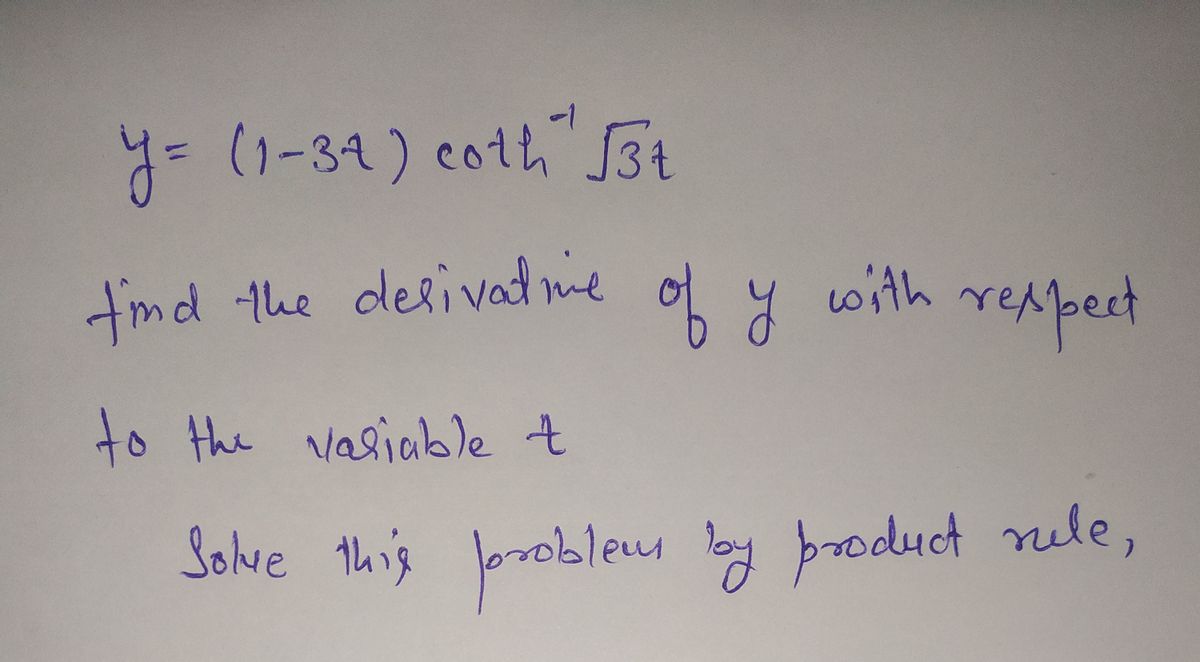 y = (1-3t) coth⁻¹ √3t
find the derivative of y with respect
to the variable t
Solve this problem by product rule,